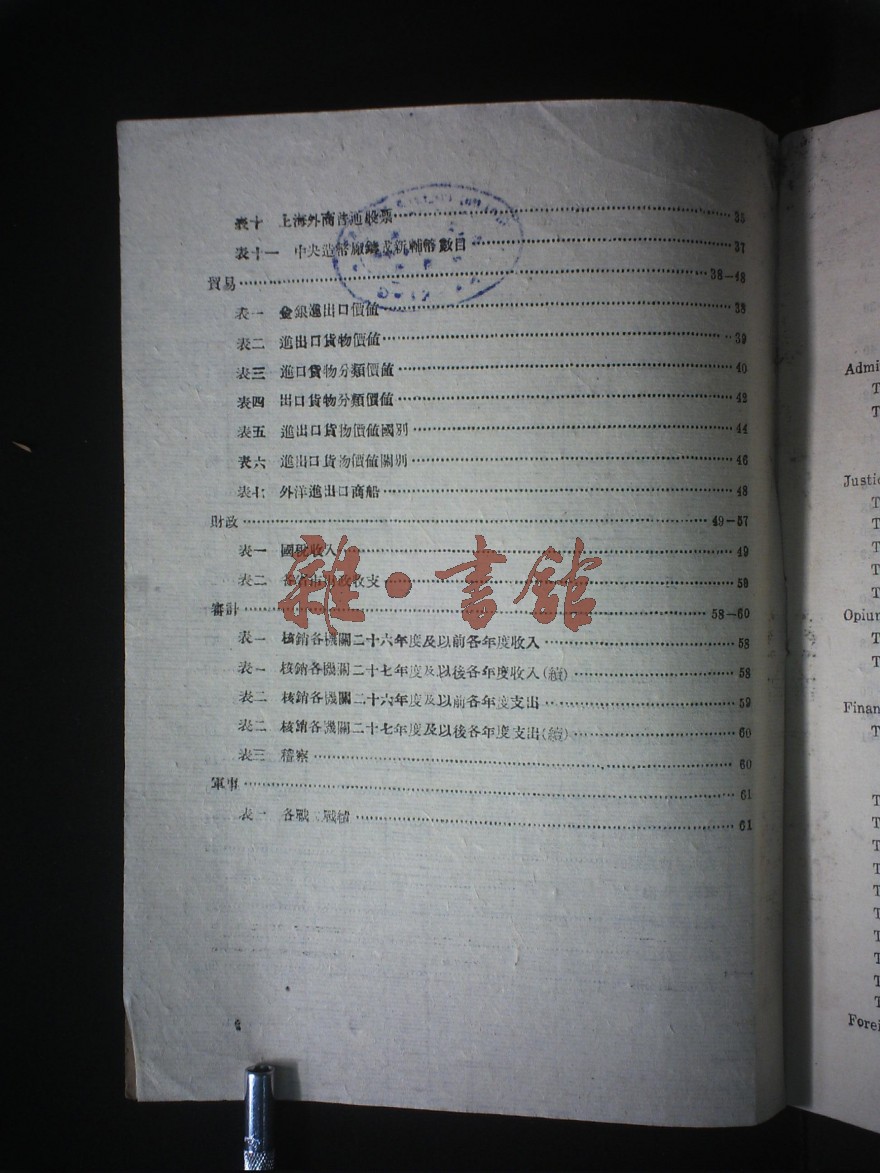 表十 上海外商普通股票 36
表十一 中央造幣廠鑄成新輔幣數目 37
貿易 38-48
表一 金銀進出口價值 38
表二 進出口貨物價值 39
表三 進口貨物分類價值 40
表四 出口貨物分類價值 42
表五 進出口貨物價值國別 44
表六 進出口貨物價值關別 46
表七 外洋進出口商船 48
財政 49-57
表一 國稅收入 49
表二 各省市財政收支 59
雜·書館
審計 58-60
表一 核銷各機關二十六年度及以前各年度收入 58
表一 核銷各機關二十七年度及以後各年度收入(續) 58
表二 核銷各機關二十六年度及以前各年度支出 59
表二 核銷各機關二十七年度及以後各年度支出(續) 60
表三 稽察 60
軍事 61
表一 各戰 戰 61
Admi
T
T
Justic
T
T
T
T
T
Opium
T
T
Finan
T
T
T
T
T
T
T
T
T
T
T
Forei